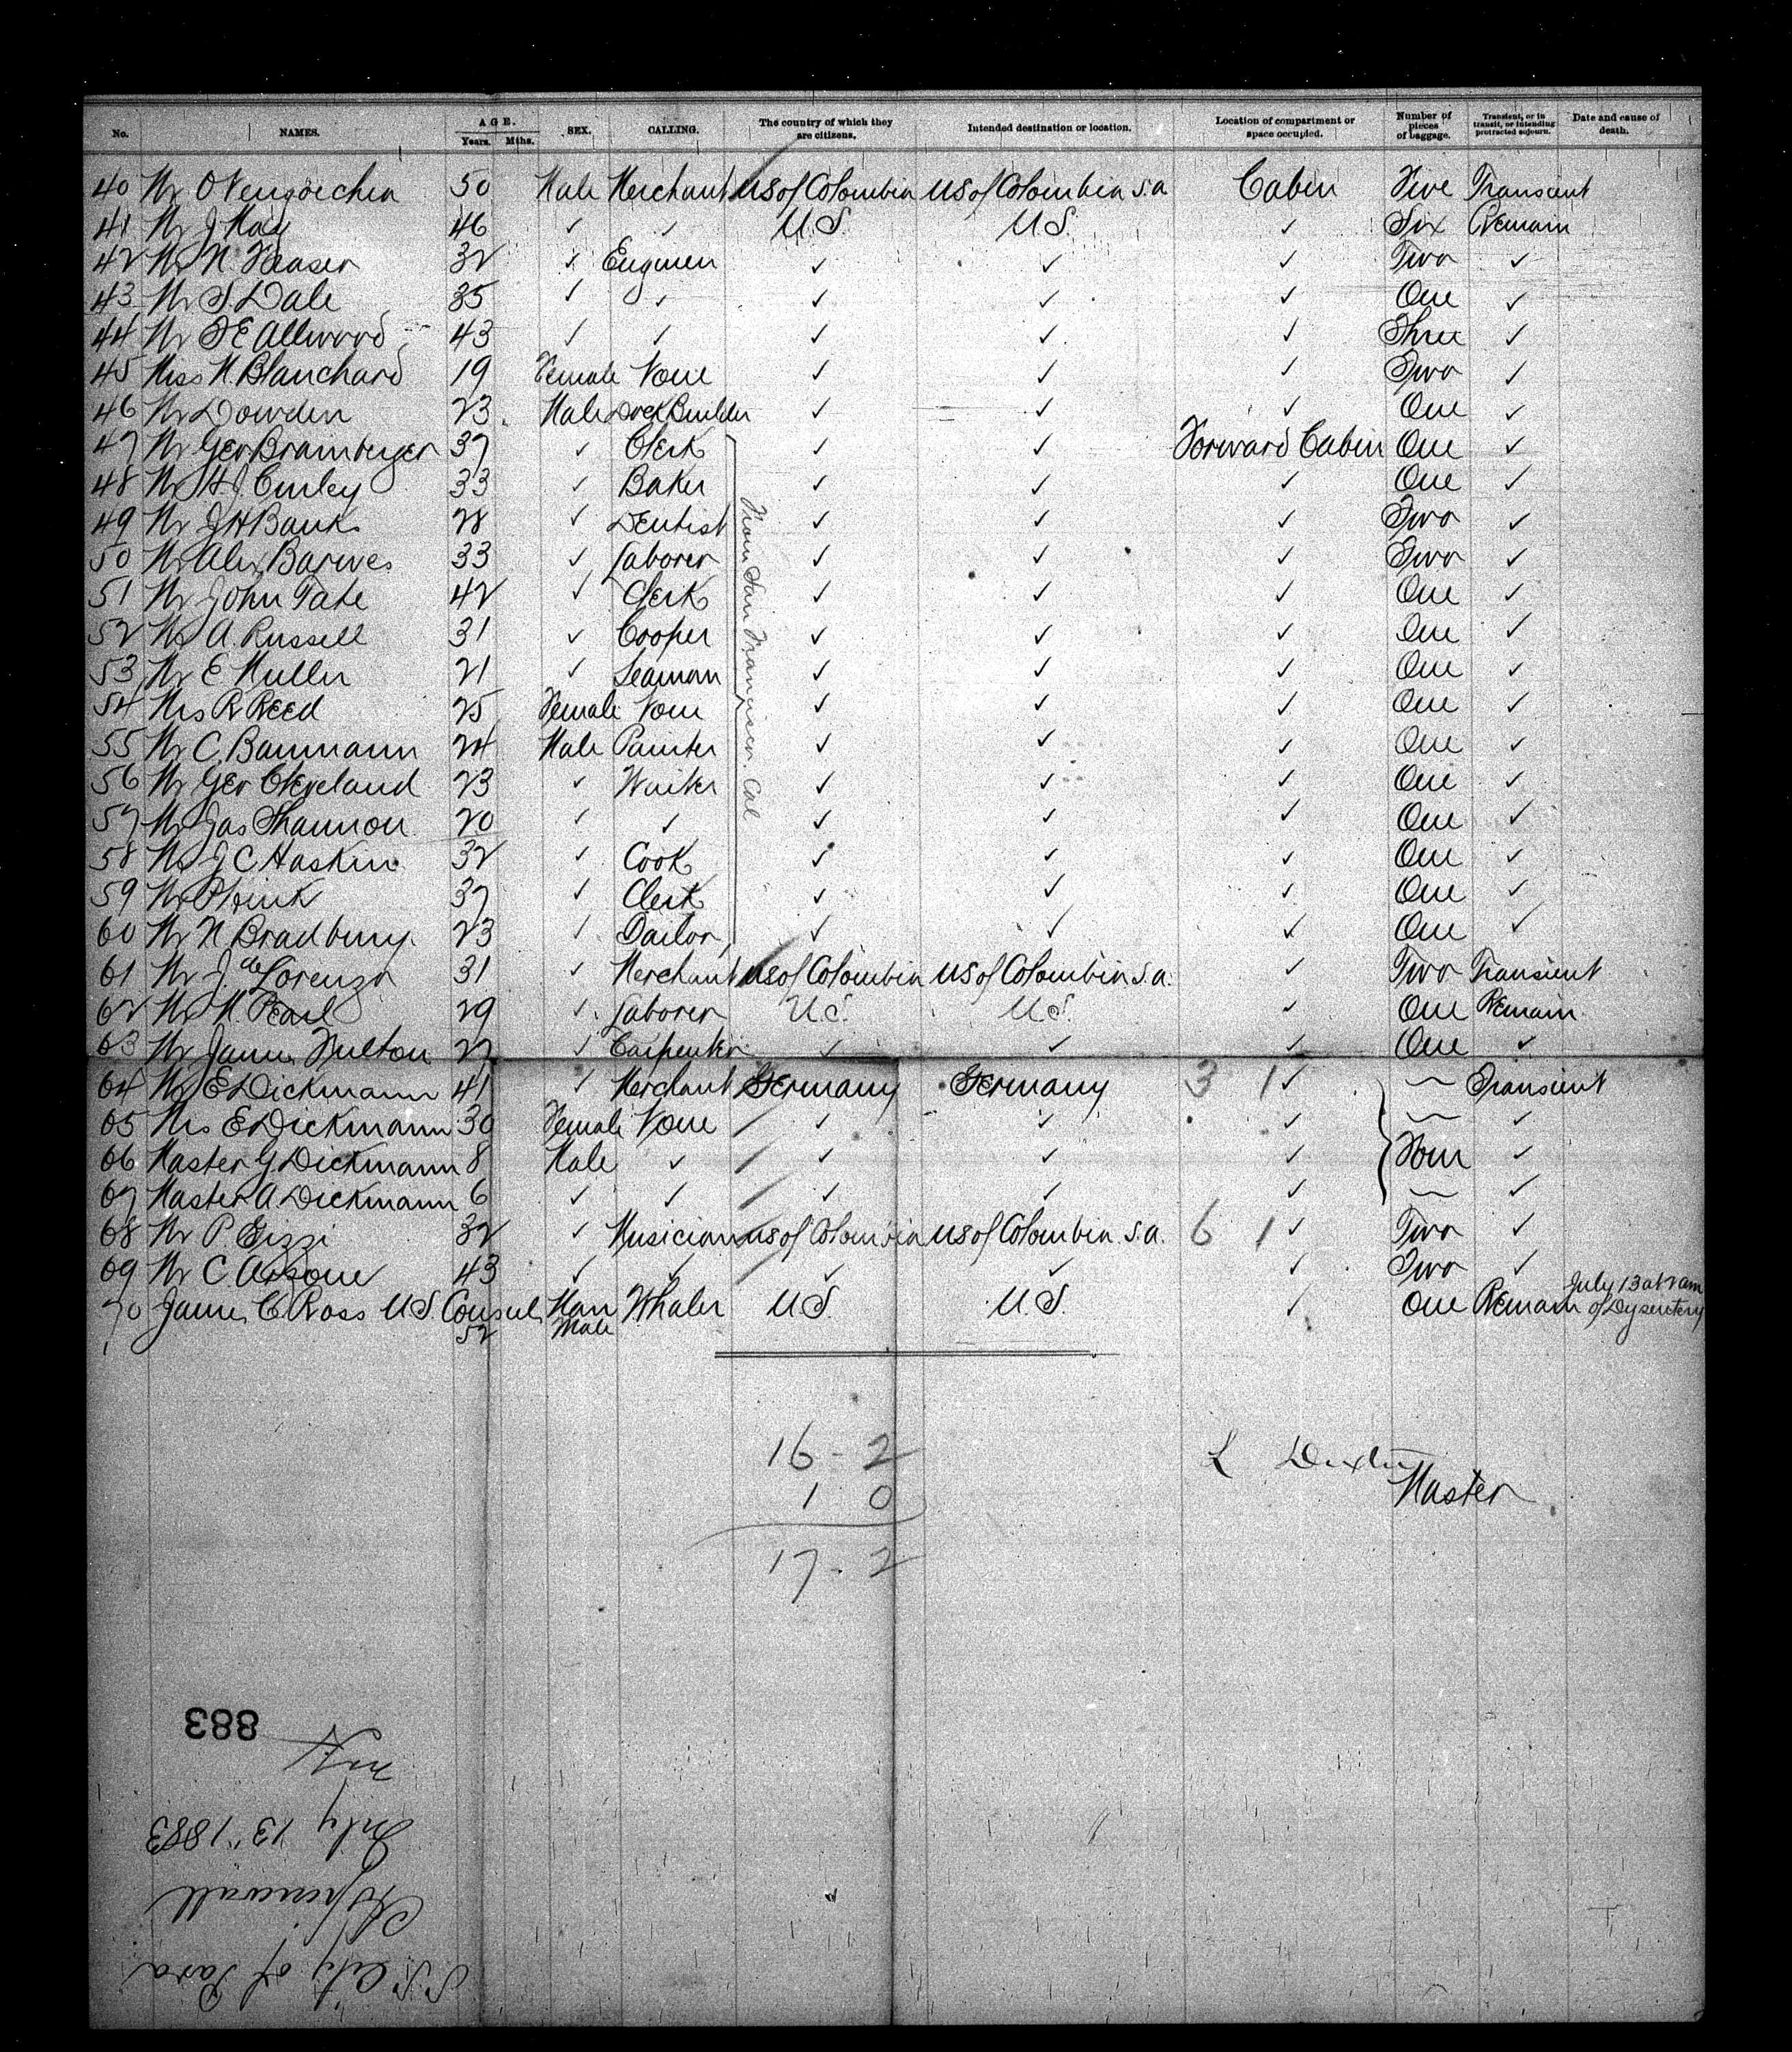 No. NAMES. AGE. Years. Mths. SEX. CALLING. The country of which they are citizens. Intended destination or location. Location of compartment or space occupied. Number of pieces of baggage. Transient, or in transit, or intending protracted sojourn. Date and cause of death.
40 Mr O Vengoechea 50 Male Merchant US of Colombia US of Colombia S.a Cabin Five Transient
41 Mr J May 46 ✓ ✓ U S. U S. ✓ Six Remain
42 Mr N. Fraser 32 ✓ Engineer ✓ ✓ ✓ Two ✓
43 Mr S. Dale 35 ✓ ✓ ✓ ✓ ✓ One ✓
44 Mr F E Allwood 43 ✓ ✓ ✓ ✓ ✓ Three ✓
45 Miss N. Blanchard 19 Female None ✓ ✓ ✓ Two ✓
46 Mr Dowden 23 Male Dock Builder ✓ ✓ ✓ One ✓
47 Mr Geo Bramberger 37 ✓ Clerk ✓ ✓ Forward Cabin One ✓
48 Mr H J. Curley 33 ✓ Baker ✓ ✓ ✓ One ✓
49 Mr J H Banks 28 ✓ Dentist ✓ ✓ ✓ Two ✓
50 Mr Alex Barwes 33 ✓ Laborer ✓ ✓ ✓ Two ✓
51 Mr John Tate 42 ✓ Clerk ✓ ✓ ✓ One ✓
52 Mr A. Russell 31 ✓ Cooper ✓ ✓ ✓ One ✓
53 Mr E Muller 21 ✓ Seaman ✓ ✓ ✓ One ✓
54 Mrs R Reed 25 Female None ✓ ✓ ✓ One ✓
55 Mr C. Baumann 24 Male Painter ✓ ✓ ✓ One ✓
56 Mr Geo Cleveland 23 ✓ Waiter ✓ ✓ ✓ One ✓
57 Mr Jas Shannon 20 ✓ ✓ ✓ ✓ ✓ One ✓
58 Mr J C Haskins 32 ✓ Cook ✓ ✓ ✓ One ✓
59 Mr 37 ✓ Clerk ✓ ✓ ✓ One ✓
60 Mr N. Bradbury 23 ✓ Tailor ✓ ✓ ✓ One ✓
From San Francisco. Cal
61 Mr J. de Lorenzo 31 ✓ Merchant US of Colombia US of Colombia S.a. ✓ Two Transient
62 Mr M. Pearl 29 ✓ Laborer U.S. U S. ✓ One Remain
63 Mr James Fulton 27 ✓ Carpenter ✓ ✓ ✓ One ✓
64 Mr E Dickmann 41 ✓ Merchant Germany Germany 3 1 ✓ Transient
65 Mrs E Dickmann 30 Female None ✓ ✓ ✓ ✓
66 Master G Dickmann 8 Male ✓ ✓ ✓ ✓ Four ✓
67 Master A. Dickmann 6 ✓ ✓ ✓ ✓ ✓ ✓
68 Mr P. Gizzi 32 ✓ Musician US of Colombia US of Colombia S.a. 6 1 ✓ Two ✓
69 Mr C. 43 ✓ ✓ ✓ ✓ ✓ Two ✓
70 James C. Ross U.S. Consul 52 Man Male Whaler U S. U. S. ✓ One Remain July 13 at 2 am of Dysentery
16 - 2
1 0
17 - 2
L Dexter
Master
S.S. City of Para
Aspinwall
July 13" 1883
883